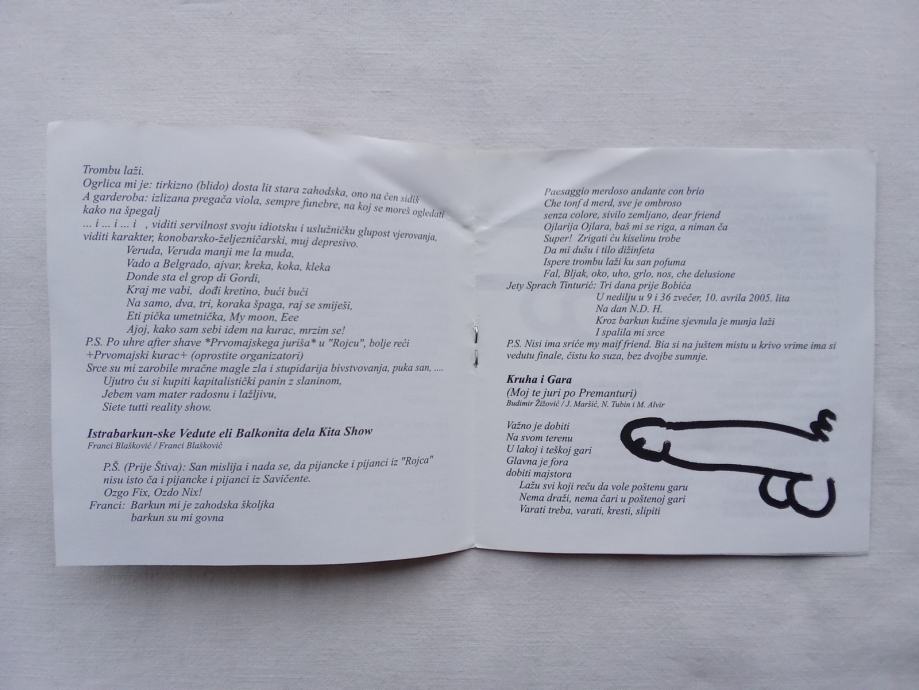 Trombu laži.
Ogrlica mi je: tirkizno (blido) dosta lit stara zahodska, ono na čen sidik
A garderoba: izlizana pregača viola, sempre funebre, na koj se moreš ogledati
kako na špegalj
... i ... i ... i , viditi servilnost svoju idiotsku i uslužničku glupost vjerovanja,
viditi karakter, konobarsko-željezničarski, muj depresivo.
Veruda, Veruda manji me la muda,
Vado a Belgrado, ajvar, kreka, koka, kleka
Donde sta el grop di Gordi,
Kraj me vabi, dođi kretino, bući bući
Na samo, dva, tri, koraka špaga, raj se smiješi,
Eti pička umetnička, My moon, Eee
Ajoj, kako sam sebi idem na kurac, mrzim se!
P.S. Po uhre after shave *Prvomajskega juriša* u "Rojcu", bolje reći
+Prvomajski kurac+ (oprostite organizatori)
Srce su mi zarobile mračne magle zla i stupidarija bivstvovanja, puka san, ....
Ujutro ću si kupiti kapitalistički panin z slaninom,
Jebem vam mater radosnu i lažljivu,
Siete tutti reality show.
Istrabarkun-ske Vedute eli Balkonita dela Kita Show
Franci Blašković / Franci Blašković
P.Š. (Prije Štiva): San mislija i nada se, da pijancke i pijanci iz "Rojca"
nisu isto ča i pijancke i pijanci iz Savičente.
Ozgo Fix, Ozdo Nix!
Franci: Barkun mi je zahodska školjka
barkun su mi govna
Paesaggio merdoso andante con brio
Che tonf d merd, sve je ombroso
senza colore, sivilo zemljano, dear friend
Ojlarija Ojlara, baš mi se riga, a niman ča
Super! Zrigati ću kiselinu trobe
Da mi dušu i tilo dižinfeta
Ispere trombu laži ku san pofuma
Fal, Bljak, oko, uho, grlo, nos, che delusione
Jety Sprach Tinturić: Tri dana prije Bobića
U nedilju u 9 i 36 zvečer, 10. avrila 2005. lita
Na dan N.D. H.
Kroz barkun kužine sjevnula je munja laži
I spalila mi srce
P.S. Nisi ima sriće my maif friend. Bia si na juštem mistu u krivo vrime ima si
vedutu finale, čistu ko suza, bez dvojbe sumnje.
Kruha i Gara
(Moj te juri po Premanturi)
Budimir Žižović / J. Maršić, N. Tubin i M. Alvir
Važno je dobiti
Na svom terenu
U lakoj i teškoj gari
Glavna je fora
dobiti majstora
Lažu svi koji reču da vole poštenu garu
Nema draži, nema čari u poštenoj gari
Varati treba, varati, kresti, slipiti